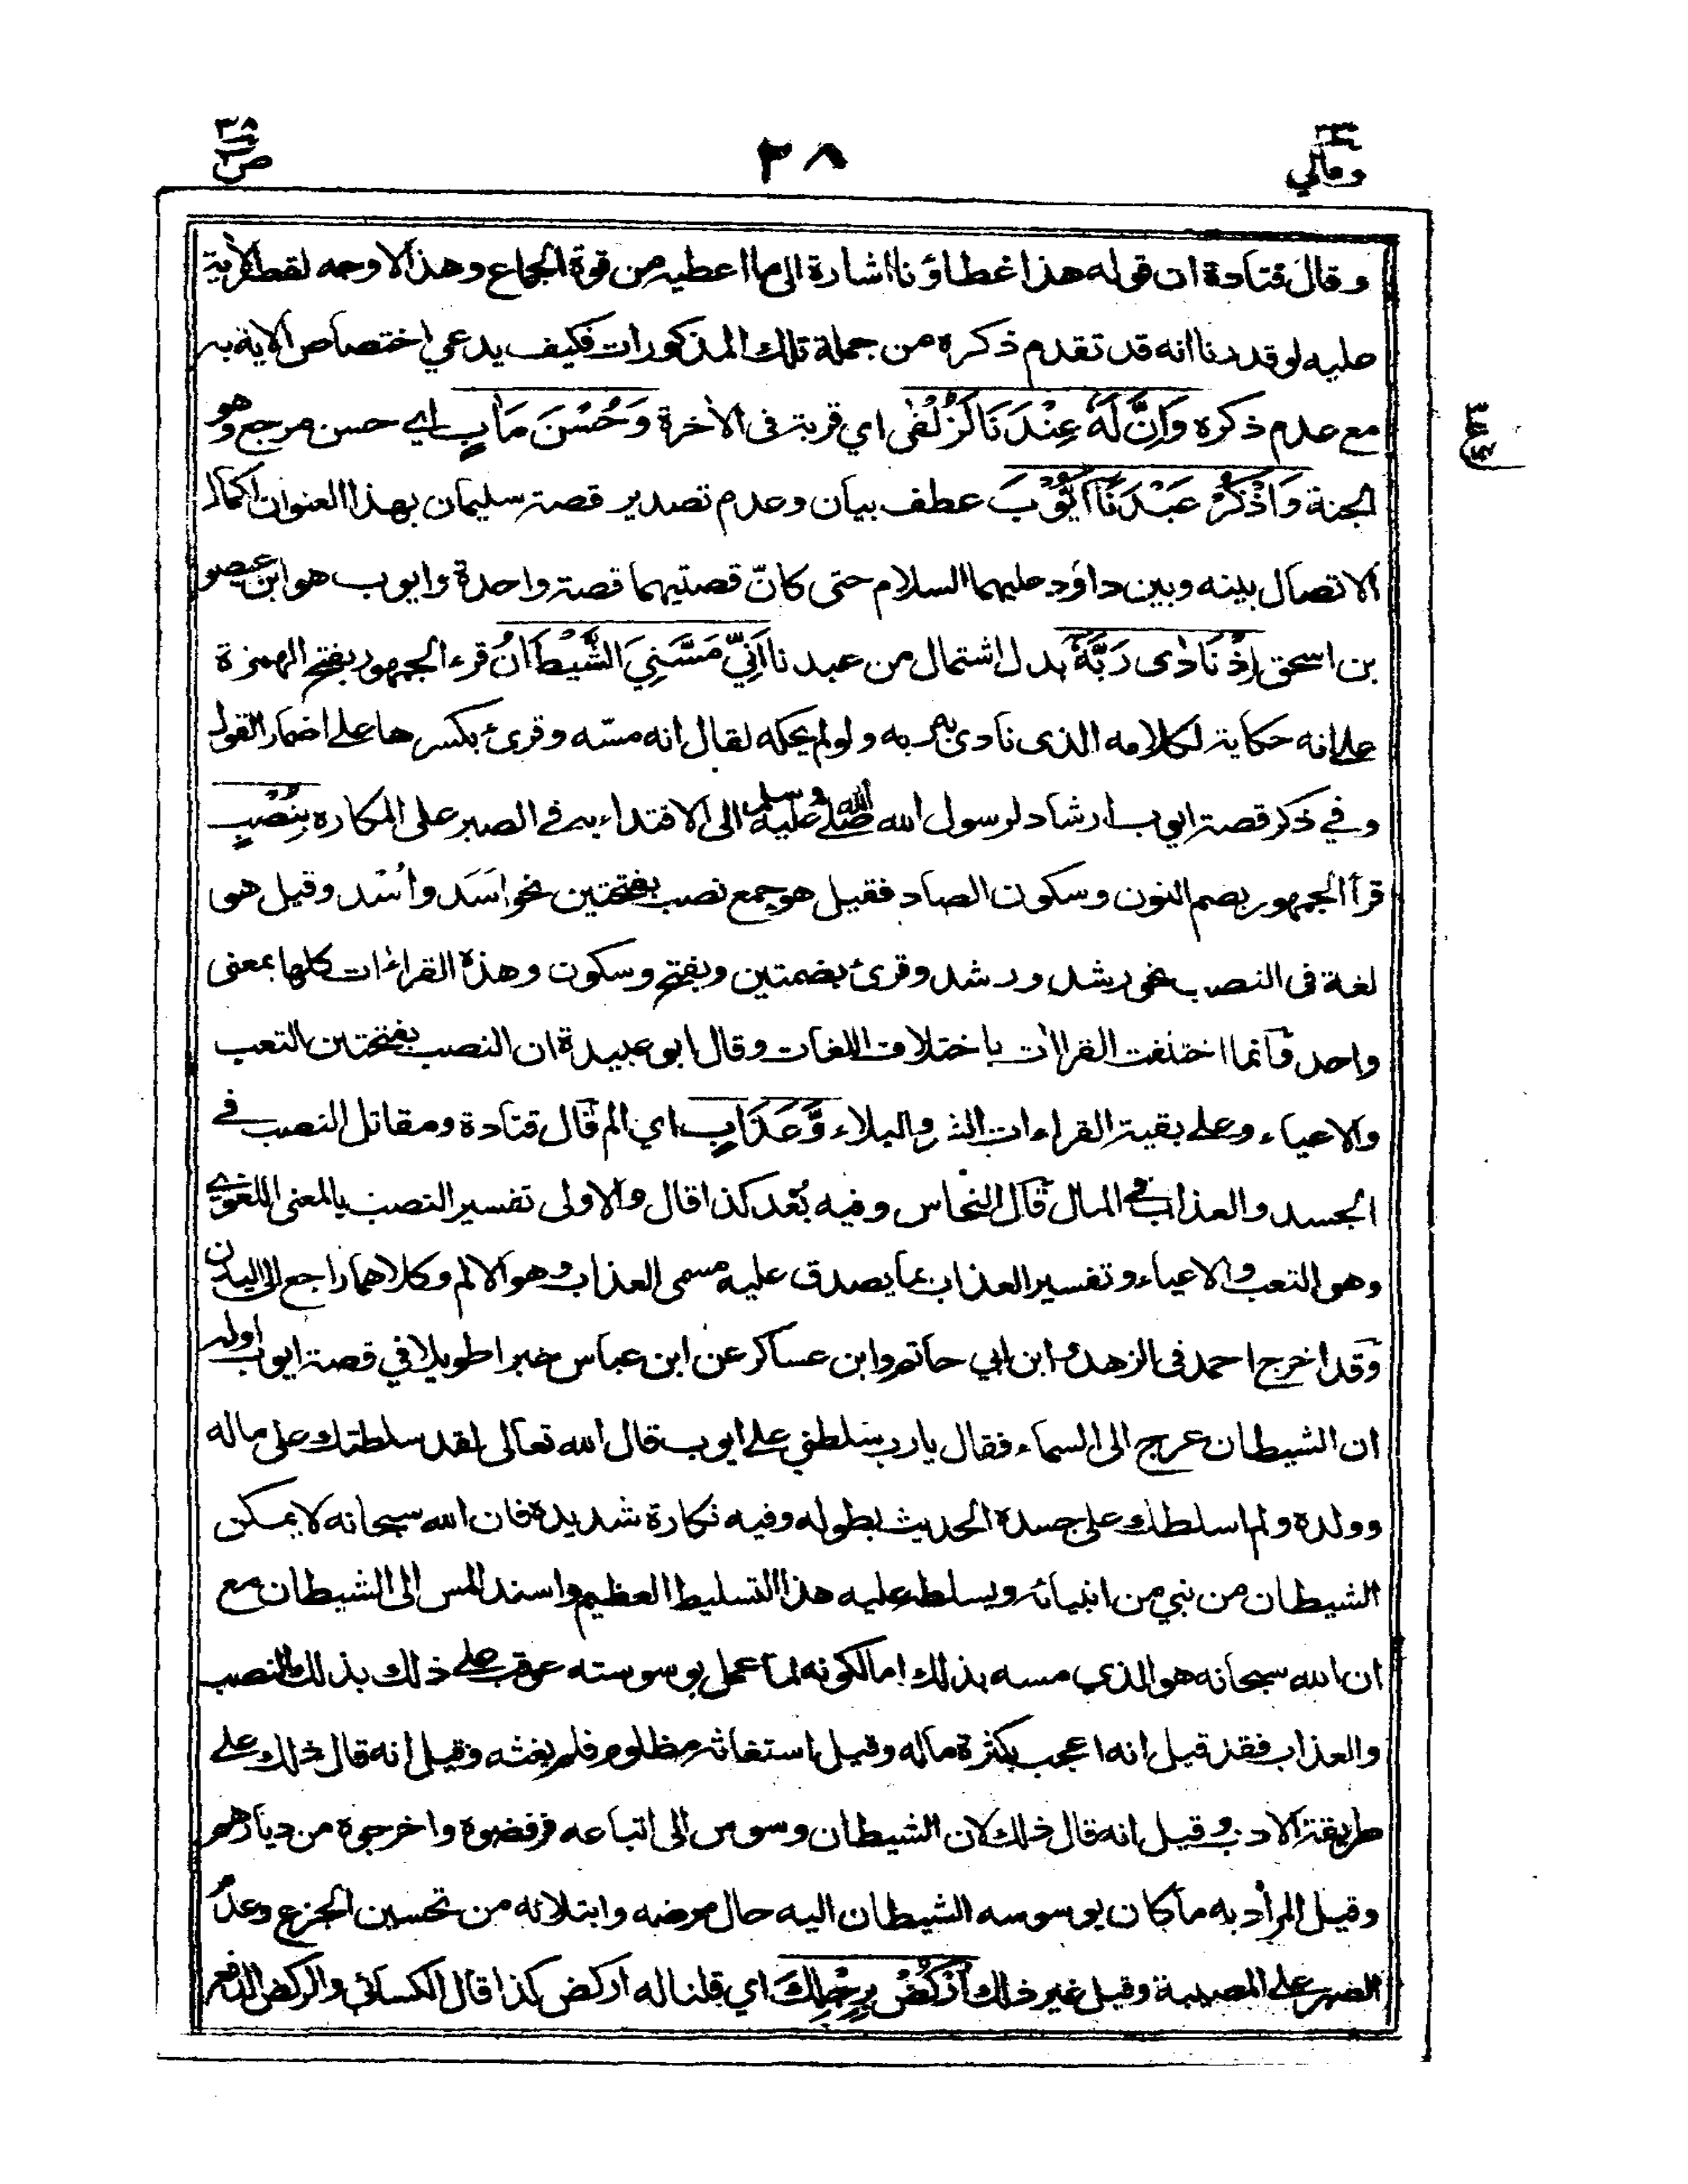 ومالي ٢٣
٢٨
ص ٣٨
و قال قتادة ان قوله هذا عطاؤنا اشارة الى ما اعطيه من قوة الجماع وهذا لا وجه لقصر الآية
عليه لو قدرنا انه قد تقدم ذكره من جملة تلك المذكورات فكيف يدعي اختصاص الآية به
مع عدم ذكره وَاِنَّ لَهٗ عِنْدَنَا لَزُلْفٰى اي قربة فى الاخرة وَحُسْنَ مَاٰبٍ اي حسن مرجع وهو
الجنة وَاذْكُرْ عَبْدَنَآ اَيُّوْبَ عطف بيان وعدم تصدير قصة سليمان بهذا العنوان لكمال
الاتصال بينه وبين داؤد عليهما السلام حتى كانّ قصتيهما قصة واحدة وايوب هو ابن عيصو
بن اسحق اِذْ نَادٰى رَبَّهٗ بدل اشتمال من عبدنا اَنِّيْ مَسَّنِيَ الشَّيْطَانُ قرء الجمهور بفتح الهمزة
على انه حكاية لكلامه الذى نادى به ربه ولو لم يحكه لقال انه مسّه وقرئ بكسرها على اضمار القول
وفي ذكر قصة ايوب ارشاد لرسول الله صلى الله عليه وسلم الى الاقتداء به في الصبر على المكاره بِنُصْبٍ
قرأ الجمهور بضم النون وسكون الصاد فقيل هو جمع نصب بفتحتين نحو اَسَد واُسْد وقيل هو
لغة فى النصب نحو رشد ورشد وقرئ بضمتين وبفتح وسكون وهذة القراءات كلها بمعنى
واحد وانما اختلفت القراات باختلاف اللغات وقال ابو عبيدة ان النصب بفتحتين التعب
والاعياء وعلى بقية القراءات الشر والبلاء وَّعَذَابٍ اي الم قال قتادة ومقاتل النصب في
الجسد والعذاب في المال قال النحاس وفيه بُعْد كذا قال والاولى تفسير النصب بالمعنى اللغوي
وهو التعب والاعياء وتفسير العذاب بما يصدق عليه مسمى العذاب وهو الالم وكلاهما راجع الى البدن
وقد اخرج احمد فى الزهد وابن ابي حاتم وابن عساكر عن ابن عباس خبرا طويلا في قصة ايوب اوله
ان الشيطان عرج الى السماء فقال يا رب سلطني على ايوب قال الله تعالى لقد سلطتك على ماله
وولدة ولم اسلطك على جسدة الحديث بطوله وفيه نكارة شديدة فان الله سبحانه لا يمكن
الشيطان من نبي من انبيائه ويسلط عليه هذا التسليط العظيم واسند المس الى الشيطان مع
ان الله سبحانه هو الذي مسه بذلك اما لكونه لما عمل بوسوسته عوقب على ذلك بذلك النصب
والعذاب فقد قيل انه اعجب بكثرة ماله وقيل استغاثه مظلوم فلم يغثه وقيل انه قال ذلك على
طريقة الادب وقيل انه قال ذلك لان الشيطان وسوس الى اتباعه فرفضوة واخرجوة من ديارهم
وقيل المراد به ما كان يوسوسه الشيطان اليه حال مرضه وابتلائه من تحسين الجزع وعدم
الصبر على المصيبة وقيل غير ذلك اُرْكُضْ بِرِجْلِكَ اي قلنا له اركض كذا قال الكسائي والركض الدفع